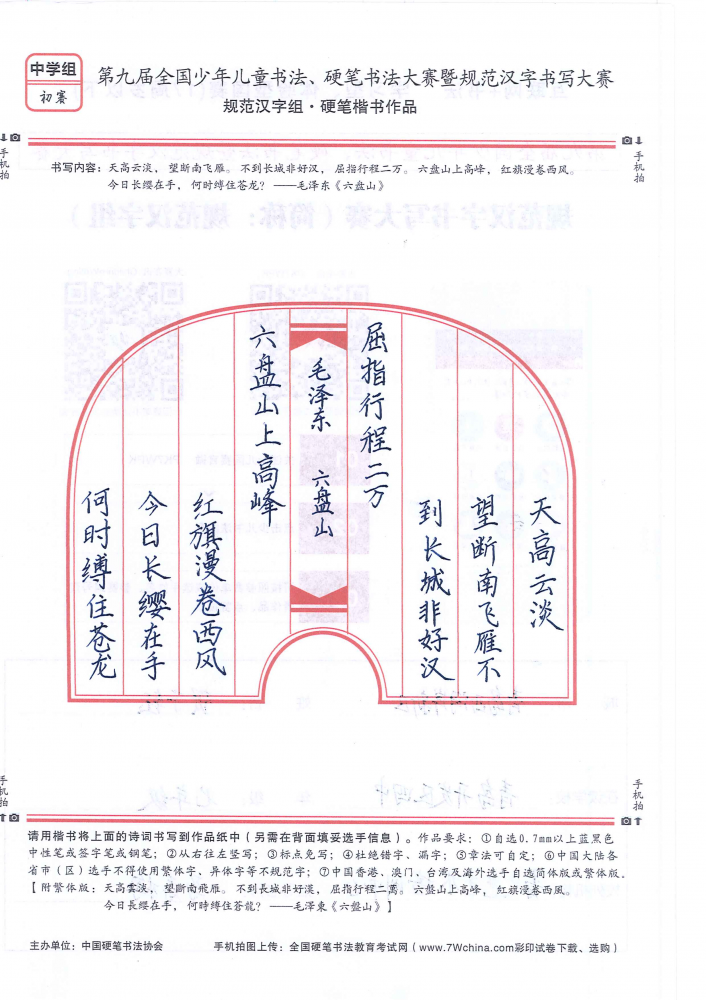 中学组
初赛
第九届全国少年儿童书法、硬笔书法大赛暨规范汉字书写大赛
规范汉字组·硬笔楷书作品
手机拍
手机拍
书写内容：天高云淡， 望断南飞雁。 不到长城非好汉， 屈指行程二万。 六盘山上高峰， 红旗漫卷西风。
今日长缨在手， 何时缚住苍龙？ ——毛泽东《六盘山》
天高云淡
望断南飞雁不
到长城非好汉
屈指行程二万
毛泽东 六盘山
六盘山上高峰
红旗漫卷西风
今日长缨在手
何时缚住苍龙
手机拍
手机拍
请用楷书将上面的诗词书写到作品纸中（另需在背面填妥选手信息）。作品要求：①自选0.7mm以上蓝黑色
中性笔或签字笔或钢笔；②从右往左竖写；③标点免写；④杜绝错字、漏字；⑤章法可自定；⑥中国大陆各
省市（区）选手不得使用繁体字、异体字等不规范字；⑦中国香港、澳门、台湾及海外选手自选简体版或繁体版。
【附繁体版：天高雲淡， 望斷南飛雁。 不到長城非好漢， 屈指行程二萬。 六盤山上高峰， 紅旗漫卷西風。
今日長纓在手， 何時縛住蒼龍？ ——毛澤東《六盤山》】
主办单位：中国硬笔书法协会 手机拍图上传：全国硬笔书法教育考试网（www.7Wchina.com彩印试卷下载、选购）